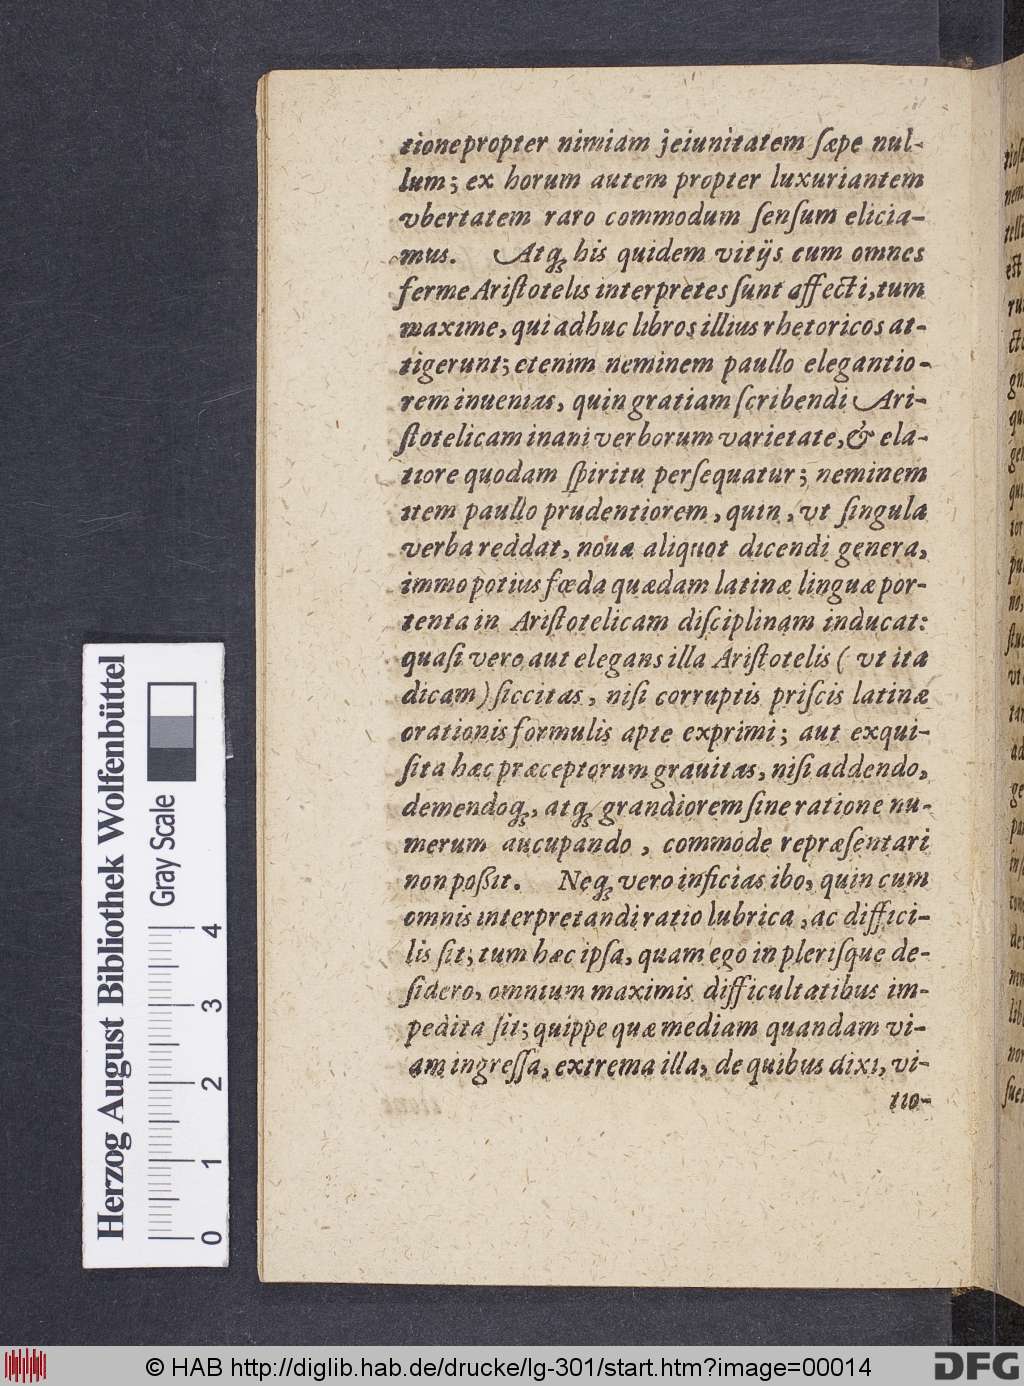 tione propter nimiam jeiunitatem sæpe nul-
lum; ex horum autem propter luxuriantem
vbertatem raro commodum sensum elicia-
mus. Atq; his quidem vitijs cum omnes
ferme Aristotelis interpretes sunt affecti, tum
maxime, qui adhuc libros illius rhetoricos at-
tigerunt; etenim neminem paullo elegantio-
rem inuenias, quin gratiam scribendi Ari-
stotelicam inani verborum varietate, & ela-
tiore quodam spiritu persequatur; neminem
item paullo prudentiorem, quin, vt singula
verba reddat, nouæ aliquot dicendi genera,
immo potius fœda quædam latinæ linguæ por-
tenta in Aristotelicam disciplinam inducat:
quasi vero aut elegans illa Aristotelis ( vt ita
dicam) siccitas, nisi corruptis priscis latinæ
orationis formulis apte exprimi; aut exqui-
sita hæc præceptorum grauitas, nisi addendo,
demendoq;, atq; grandiorem sine ratione nu-
merum aucupando, commode repræsentari
non poßit. Neq; vero inficias ibo, quin cum
omnis interpretandi ratio lubrica, ac diffici-
lis sit; tum hæc ipsa, quam ego in plerisque de-
sidero, omnium maximis difficultatibus im-
pedita sit; quippe quæ mediam quandam vi-
am ingressa, extrema illa, de quibus dixi, vi-
tio-
Herzog August Bibliothek Wolfenbüttel
Gray Scale
0 1 2 3 4
© HAB http://diglib.hab.de/drucke/lg-301/start.htm?image=00014
DFG